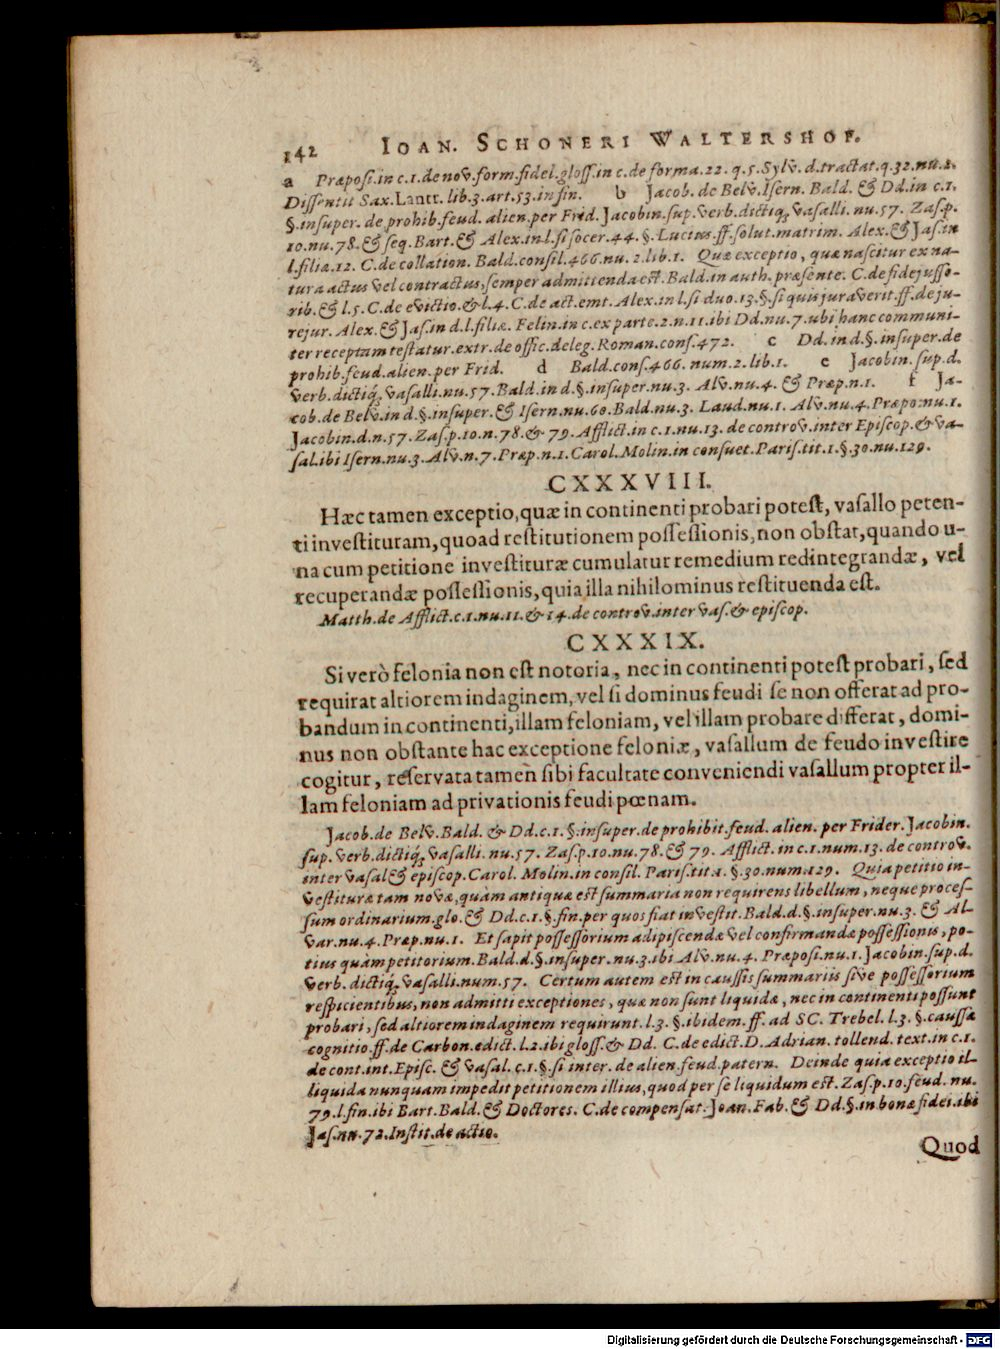 142 IOAN. SCHONERI WALTERSHOF.
a Præposi. in c. 1. de nov. form. fidel. gloss. in c. de forma. 22. q. 5. Sylv. d. tractat. q. 32. nu. 2.
Dissentit Sax. Lantr. lib. 3. art. 53. in fin. b Jacob. de Belv. Isern. Bald. & Dd. in c. 1.
§. insuper. de prohib. feud. alien. per Frid. Jacobin. sup. verb. dictiq; vasalli. nu. 57. Zas. p.
10. nu. 78. & seq. Bart. & Alex. in l. si socer. 44. §. Lucius. ff. solut. matrim. Alex. & Jas. in
l. filiæ. 12. C. de collation. Bald. consil. 466. nu. 2. lib. 1. Quæ exceptio, quæ nascitur ex na-
tura actus vel contractus, semper admittenda est. Bald. in auth. præsente. C. de fidejusso-
rib. & l. 5. C. de evictio. & l. 4. C. de act. emt. Alex. in l. si duo. 13. §. si quis juraverit. ff. de ju-
rejur. Alex. & Jas. in d. l. filiæ. Felin. in c. ex parte. 2. n. 11. ibi Dd. nu. 7. ubi hanc communi-
ter receptam testatur. extr. de offic. deleg. Roman. cons. 472. c Dd. in d. §. insuper. de
prohib. feud. alien. per Frid. d Bald. cons. 466. num. 2. lib. 1. e Jacobin. sup. d.
verb. dictiq́; vasalli. nu. 57. Bald. in d. §. insuper. nu. 3. Alv. nu. 4. & Præp. n. 1. f Ja-
cob. de Belv. in d. §. insuper. & Isern. nu. 60. Bald. nu. 3. Laud. nu. 1. Alv. nu. 4. Præpo. nu. 1.
Jacobin. d. n. 57. Zas. p. 10. n. 78. & 79. Afflict. in c. 1. nu. 13. de controv. inter Episcop. & va-
sal. ibi Isern. nu. 3. Alv. n. 7. Præp. n. 1. Carol. Molin. in consuet. Paris. tit. 1. §. 30. nu. 129.
CXXXVIII.
Hæc tamen exceptio, quæ in continenti probari potest, vasallo peten-
ti investituram, quoad restitutionem possessionis, non obstat, quando u-
na cum petitione investituræ cumulatur remedium redintegrandæ, vel
recuperandæ possessionis, quia illa nihilominus restituenda est.
Matth. de Afflict. c. 1. nu. 11. & 14. de controv. inter vas. & episcop.
CXXXIX.
Si verò felonia non est notoria, nec in continenti potest probari, sed
requirat altiorem indaginem, vel si dominus feudi se non offerat ad pro-
bandum in continenti, illam feloniam, vel illam probare differat, domi-
nus non obstante hac exceptione feloniæ, vasallum de feudo investire
cogitur, reservata tamen sibi facultate conveniendi vasallum propter il-
lam feloniam ad privationis feudi pœnam.
Jacob. de Belv. Bald. & Dd. c. 1. §. insuper. de prohibit. feud. alien. per Frider. Jacobin.
sup. verb. dictiq́; vasalli. nu. 57. Zas. p. 10. nu. 78. & 79. Afflict. in c. 1. num. 13. de controv.
inter vasal & episcop. Carol. Molin. in consil. Paris. tit. 1. §. 30. num. 129. Quia petitio in-
vestituræ tam novæ, quàm antiquæ est summaria non requirens libellum, neque proces-
sum ordinarium. glo. & Dd. c. 1. §. fin. per quos fiat investit. Bald. d. §. insuper. nu. 3. & Al-
var. nu. 4. Præp. nu. 1. Et sapit possessorium adipiscendæ vel confirmandæ possessionis, po-
tius quàm petitorium. Bald. d. §. insuper. nu. 3. ibi Alv. nu. 4. Præposi. nu. 1. Jacobin. sup. d.
verb. dictiq́; vasalli. num. 57. Certum autem est in caussis summariis sive possessorium
respicientibus, non admitti exceptiones, quæ non sunt liquidæ, nec in continenti possunt
probari, sed altiorem indaginem requirunt. l. 3. §. ibidem. ff. ad SC. Trebel. l. 3. §. caussæ
cognitio. ff. de Carbon. edict. l. 2. ibi gloss. & Dd. C. de edict. D. Adrian. tollend. text. in c. 1.
de cont. int. Episc. & vasal. c. 1. §. si inter. de alien. feud. patern. Deinde quia exceptio il-
liquida nunquam impedit petitionem illius, quod per se liquidum est. Zas. p. 10. feud. nu.
79. l. fin. ibi Bart. Bald. & Doctores. C. de compensat. Joan. Fab. & Dd. §. in bonæ fidei. ibi
Jas. nu. 72. Instit. de actio.
Quod
Digitalisierung gefördert durch die Deutsche Forschungsgemeinschaft - DFG